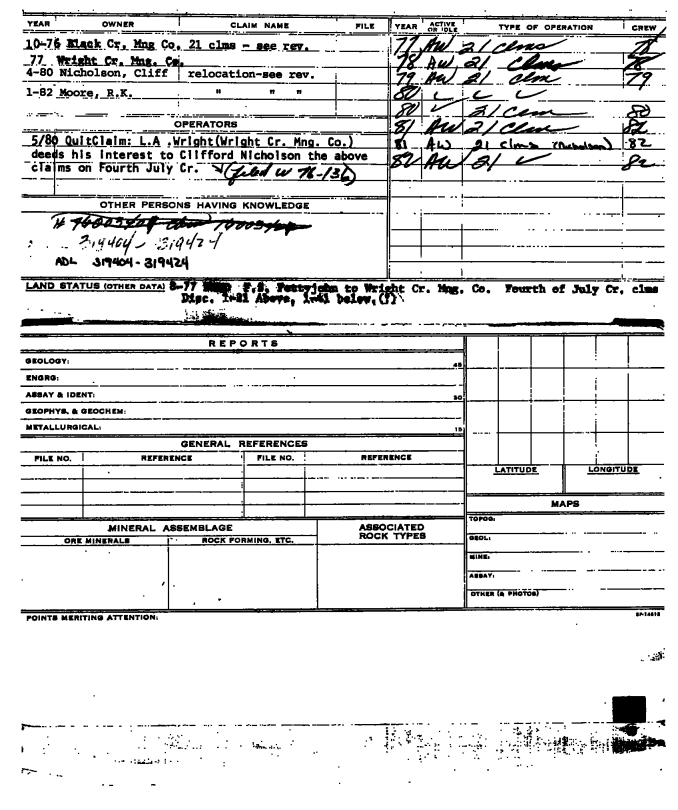 YEAR OWNER CLAIM NAME FILE
10-76 Black Cr. Mng Co. 21 clms - see rev.
77 Wright Cr. Mng. Co.
4-80 Nicholson, Cliff relocation-see rev.
1-82 Moore, R.K. " " "
OPERATORS
5/80 QuitClaim: L.A ,Wright(Wright Cr. Mng. Co.)
deeds his interest to Clifford Nicholson the above
claims on Fourth July Cr. (filed w 76-136)
OTHER PERSONS HAVING KNOWLEDGE
319404 - 319424
ADL 319404 - 319424
YEAR ACTIVE OR IDLE TYPE OF OPERATION CREW
77 AW 21 clms 78
78 AW 21 Clms 78
79 AW 21 clm 79
80 ✓ ✓ ✓
80 ✓ 21 Clm 80
81 AW 21 Clm 82
81 AW 21 clms (Nicholson) 82
82 AW 21 ✓ 82
LAND STATUS (OTHER DATA) 8-77 F.S. Pettyjohn to Wright Cr. Mng. Co. Fourth of July Cr, clms
Disc. 1-21 Above, 1-41 below,(?)
REPORTS
GEOLOGY: 45
ENGRG:
ASSAY & IDENT: 30
GEOPHYS, & GEOCHEM:
METALLURGICAL: 15
GENERAL REFERENCES
FILE NO. REFERENCE FILE NO. REFERENCE
LATITUDE LONGITUDE
MAPS
TOPOG:
GEOL:
MINE:
ASSAY:
OTHER (& PHOTOS)
MINERAL ASSEMBLAGE
ORE MINERALS ROCK FORMING, ETC.
ASSOCIATED
ROCK TYPES
POINTS MERITING ATTENTION: